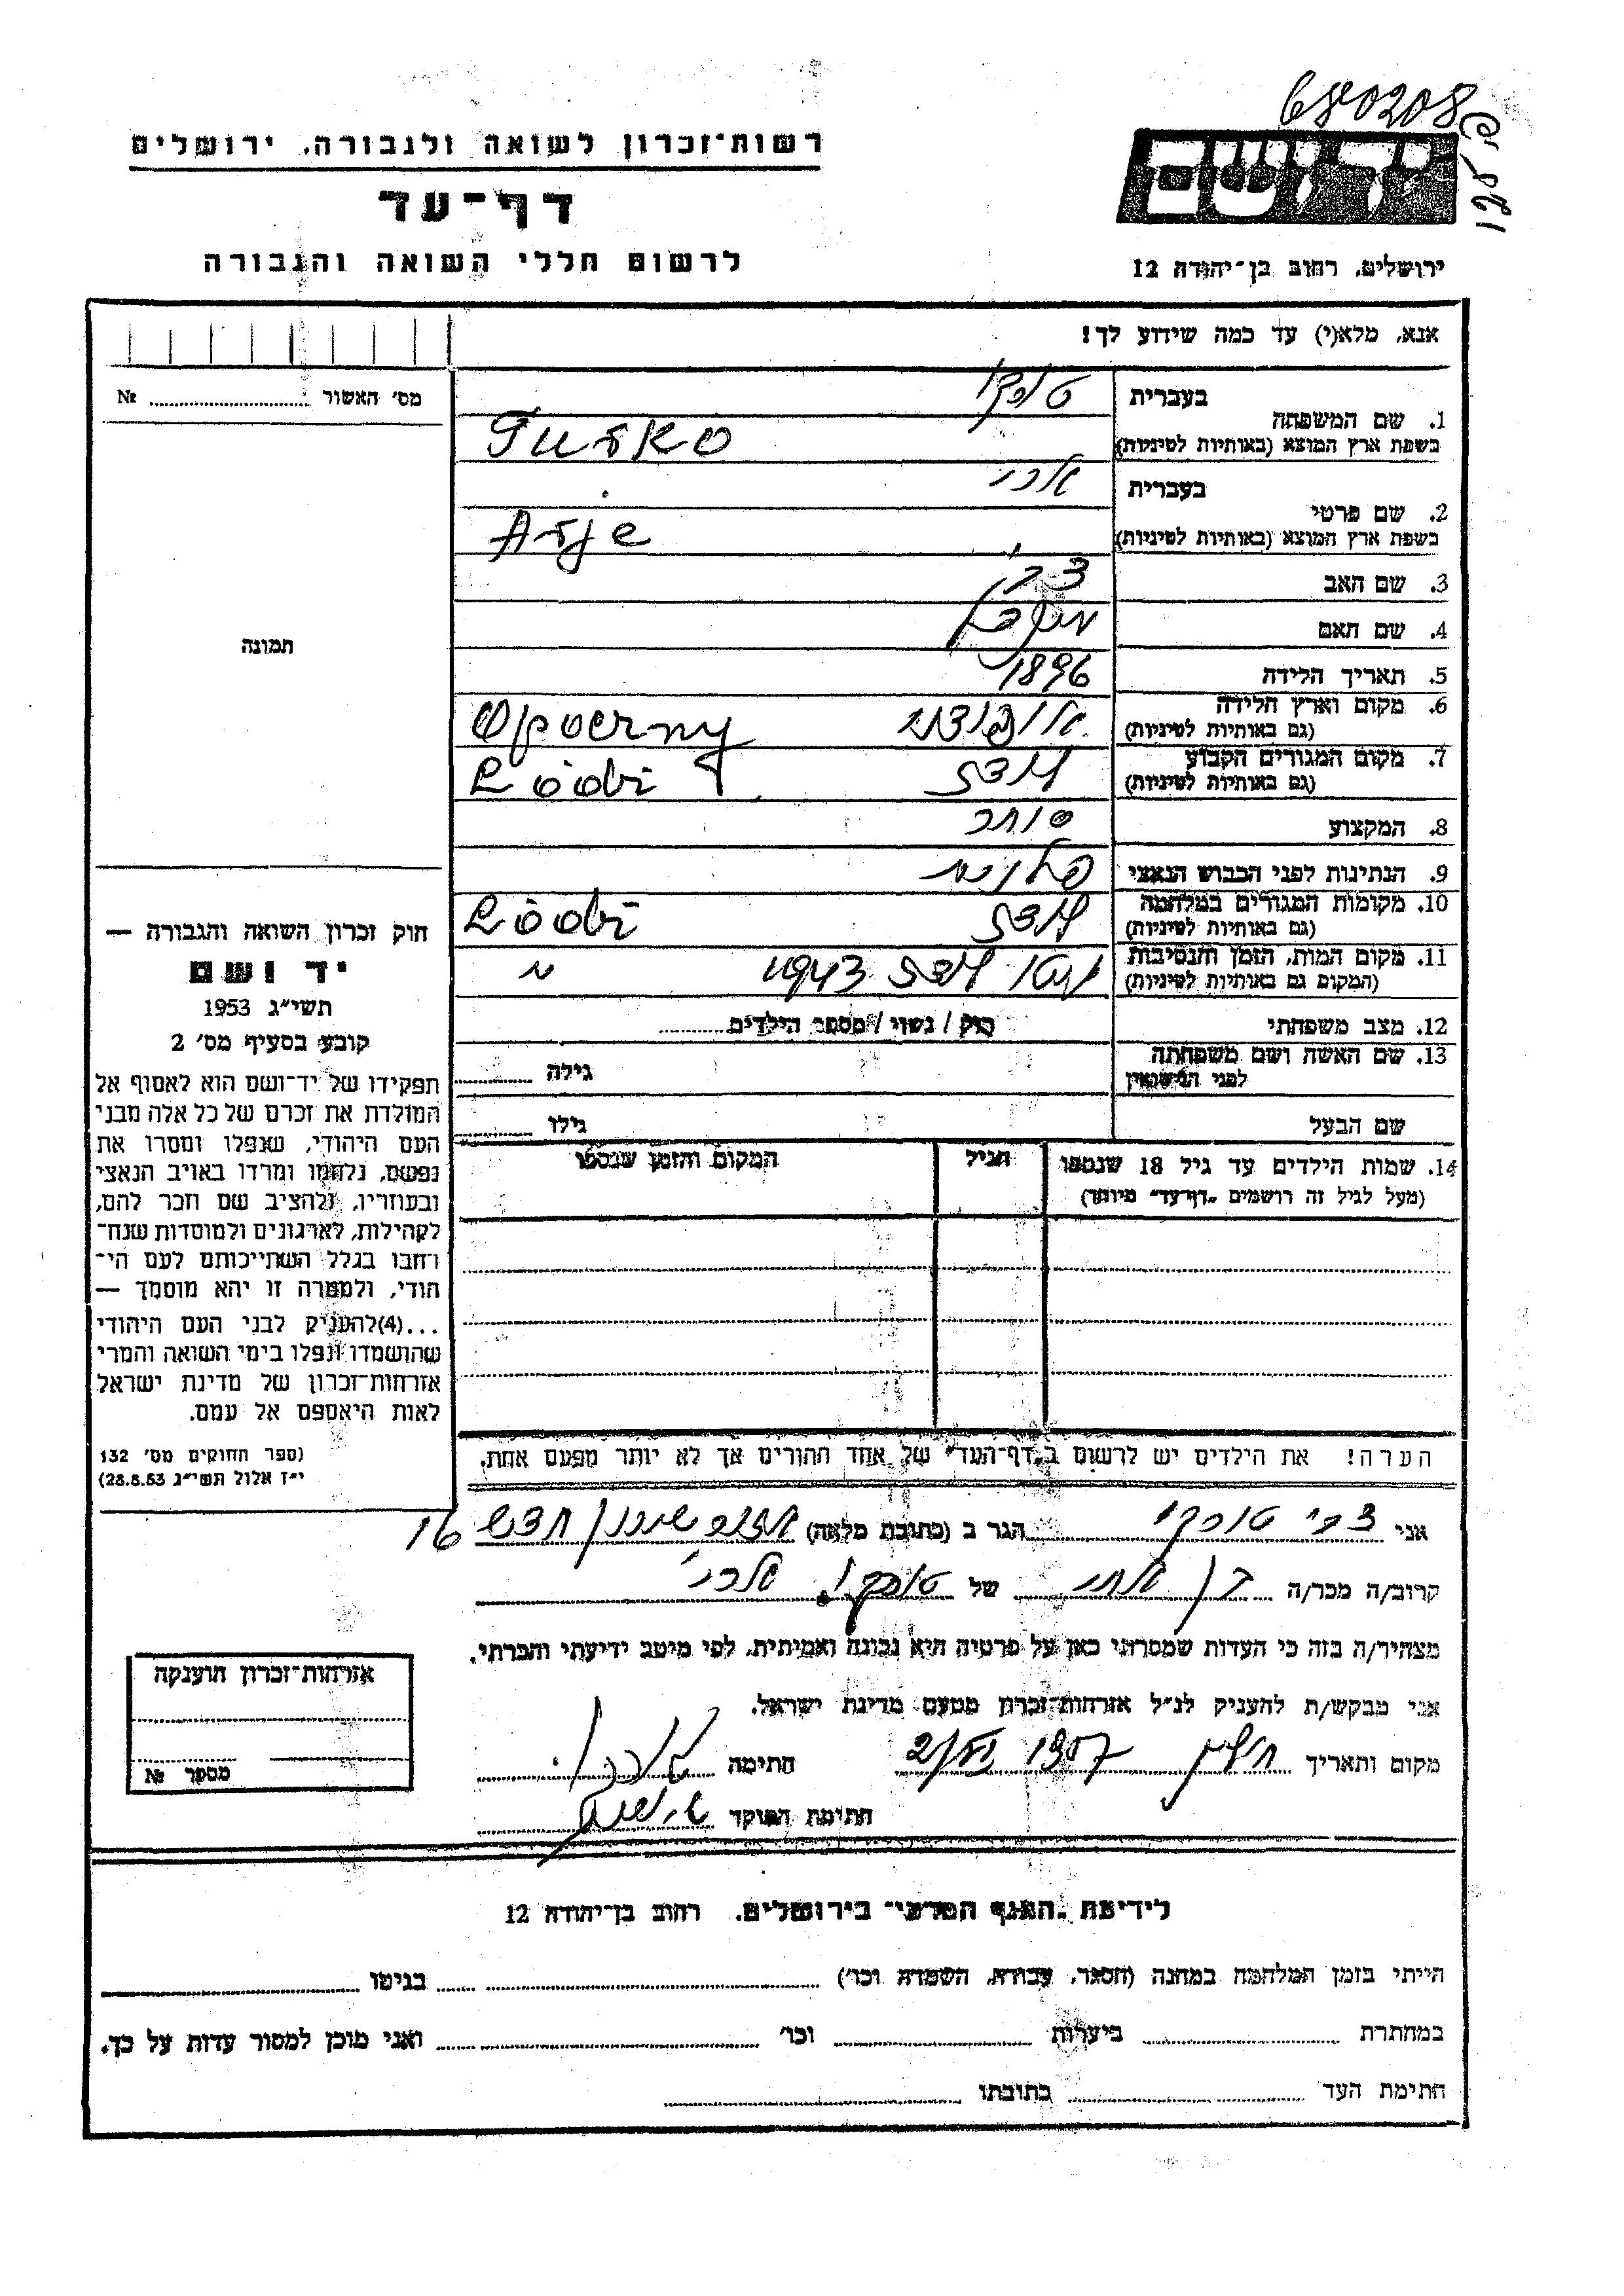 680208
יד ושם
רשות־זכרון לשואה ולגבורה, ירושלים
דף־עד
לרשום חללי השואה והגבורה
ירושלים, רחוב בן־יהודה 12
אנא, מלא(י) עד כמה שידוע לך!
מס׳ האשור № 
בעברית טורקו
1. שם המשפחה
בשפת ארץ המוצא (באותיות לטיניות) Turko
בעברית ארי
2. שם פרטי
בשפת ארץ המוצא (באותיות לטיניות) Arje
3. שם האב צבי
4. שם האם
5. תאריך הלידה 1896
6. מקום וארץ הלידה
(גם באותיות לטיניות) Opoerny
7. מקום המגורים הקבוע לודז
(גם באותיות לטיניות) Łódź
8. המקצוע סוחר
9. הנתינות לפני הכבוש הנאצי פולנית
10. מקומות המגורים במלחמה לודז
(גם באותיות לטיניות) Łódź
11. מקום המות, הזמן והנסיבות גטו לודז 1943
(המקום גם באותיות לטיניות)
12. מצב משפחתי רוק / נשוי / מספר הילדים
13. שם האשה ושם משפחתה
לפני הנישואין גילה
שם הבעל גילו
14. שמות הילדים עד גיל 18 שנספו הגיל המקום והזמן שנספו
(מעל לגיל זה רושמים „דף־עד״ מיוחד)
הערה! את הילדים יש לרשום ב„דף־העד״ של אחד ההורים אך לא יותר מפעם אחת.
תמונה
חוק זכרון השואה והגבורה —
יד ושם
תשי״ג 1953
קובע בסעיף מס׳ 2
תפקידו של יד־ושם הוא לאסוף אל
המולדת את זכרם של כל אלה מבני
העם היהודי, שנפלו ומסרו את
נפשם, נלחמו ומרדו באויב הנאצי
ובעוזריו, ולהציב שם וזכר להם,
לקהילות, לארגונים ולמוסדות שנח־
רחבו בגלל השתייכותם לעם הי־
הודי, ולמטרה זו יהא מוסמך —
...(4) להעניק לבני העם היהודי
שהושמדו ונפלו בימי השואה והמרי
אזרחות־זכרון של מדינת ישראל
לאות היאספם אל עמם.
(ספר החוקים מס׳ 132
י״ז אלול תשי״ג 28.8.53)
אני צבי טורקו הגר ב (כתובת מלאה) שיכון חדש 16
קרוב/ה מכר/ה בן אחי של טורקו ארי
מצהיר/ה בזה כי העדות שמסרתי כאן על פרטיה היא נכונה ואמיתית, לפי מיטב ידיעתי והכרתי.
אני מבקש/ת להעניק לנ״ל אזרחות־זכרון מטעם מדינת ישראל.
מקום ותאריך 1957 חתימה
חתימת הפוקד
אזרחות־זכרון הוענקה
מספר №
לידיעת „הגוף המרכזי״ בירושלים, רחוב בן־יהודה 12
הייתי בזמן המלחמה במחנה (הסגר, עבודה, השמדה וכו׳) בגיטו
במחתרת ביערות וכו׳ ואני מוכן למסור עדות על כך.
חתימת העד כתובתו